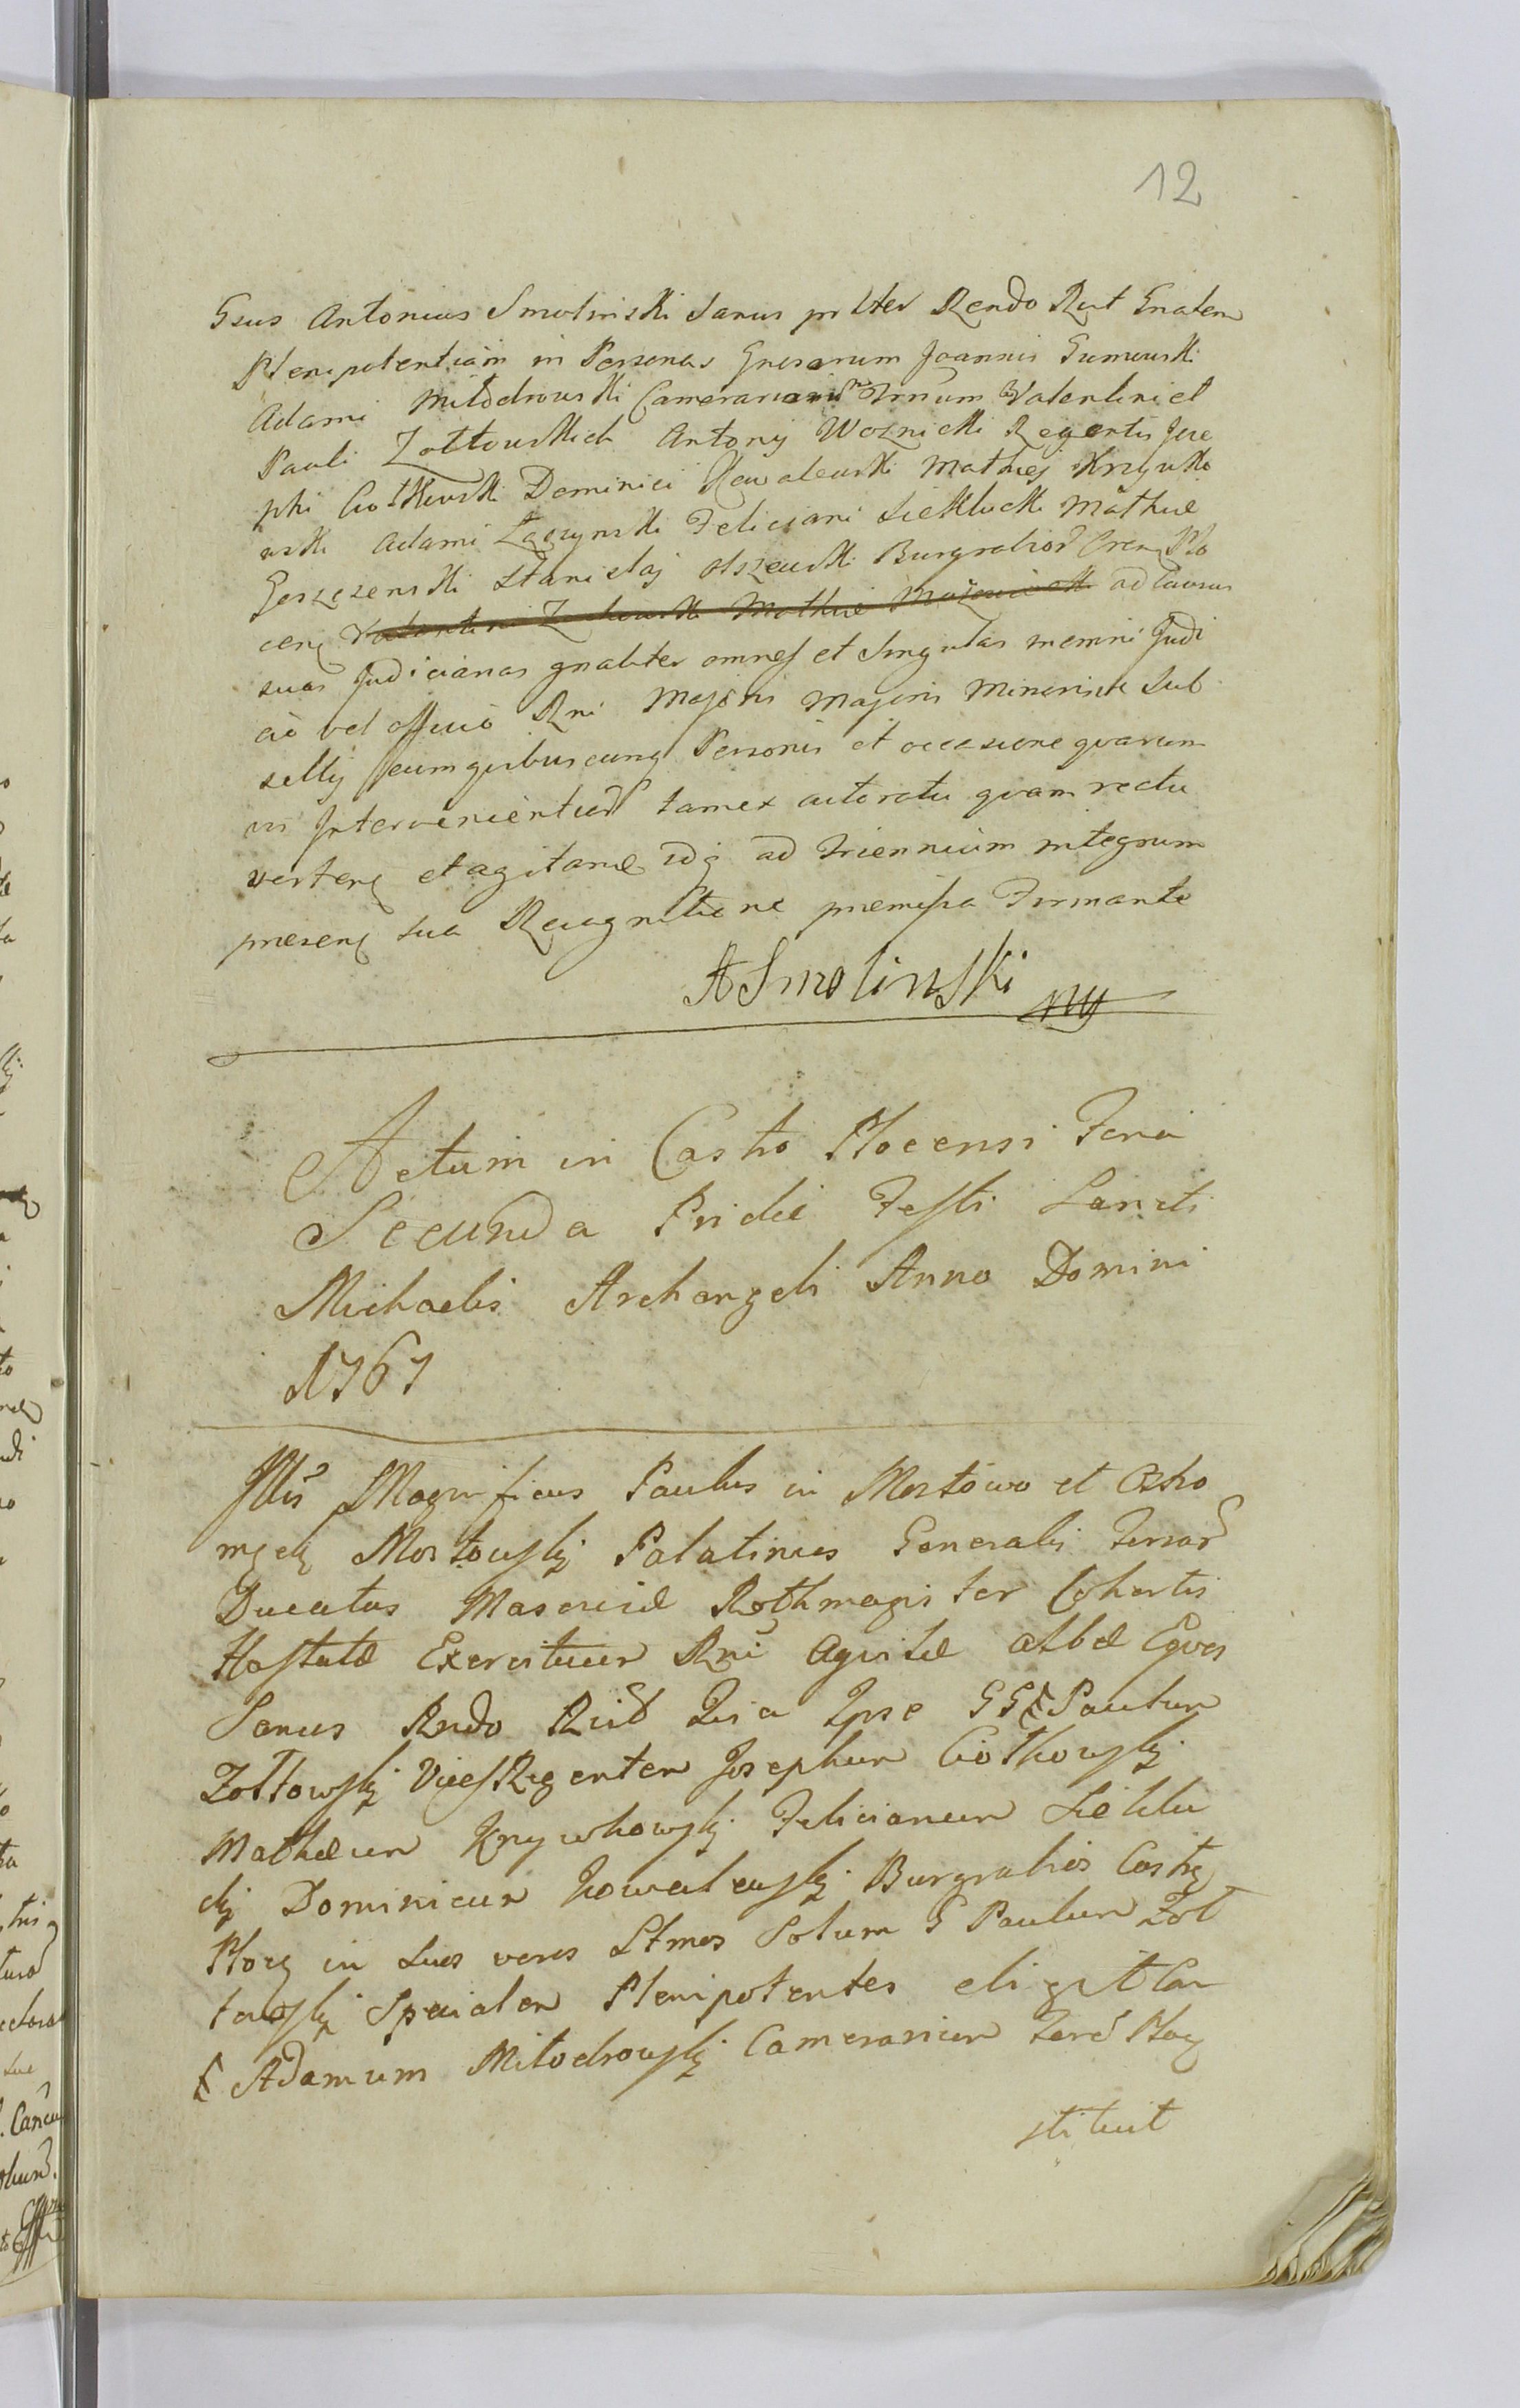 12
Gsus Antonius Smolinski Sanus pr lter Rendo Rcit Gnalem
Plenipotentiam in Personas Gnosorum Joannis Gumowski
Adami Miłodrowski Camerariorum Valentini et
Pauli Żołtowskich Antonij Woznicki Regentis Jose
phi Ciołkowski Dominici Kowalewski Mathiej Krzywko
wski Adami Łączynski Feliciani Sieklucki Mathiæ
Goszczenski Stanislaj Olszewski Burgrabior Cren Plo
cen ad Causas
suas Judiciarias gnaliter omnes et Singulas in omni Judi
cio vel officio Rni Majoris Minorisve Sub
sellij cum quibuscunq Personis et occasione quarum
vis Intervenientium tam ex actoratu quam reatu
verten et agitandæ idq ad Triennium integrum
presen sua Recognitione premissa Firmante
ASmolinski mp
Actum in Castro Plocensi Feria
Secunda Pridie Festi Sancti
Michaelis Archangeli Anno Domini
1767
Jllris Magnificus Paulus in Mostowo et Ostro
męck Mostowskj Palatinus Generalis Terrar
Ducatus Masoviæ Rothmagister Cohortis
Hastatæ Exercituum Rni Aquilæ Albæ Eques
Sanus Rndo Rcit Quia Ipse GG Paulum
Żołtowskj Vices Regentem Josephum Ciołkowskj
Mathæum Krzywkowskj Felicianum Sieklu
ckj Dominicum Kowalewskj Burgrabios Castr
Ploc in Suos veros Ltmos Solum G Paulum Żoł
towskj Specialem Plenipotentes eligit Con
Adamum Miłodrowskj Camerarium Terr Ploc
stituit